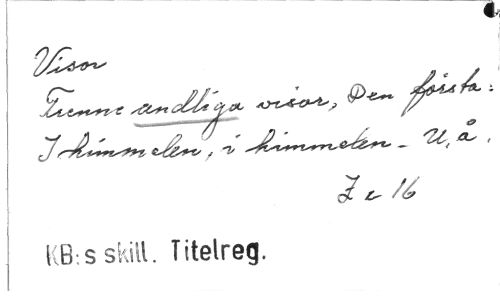 Visor
Trenne andliga visor, Den första:
I himmelen, i himmelen - U. å.
Z c 16
KB:s skill. Titelreg.